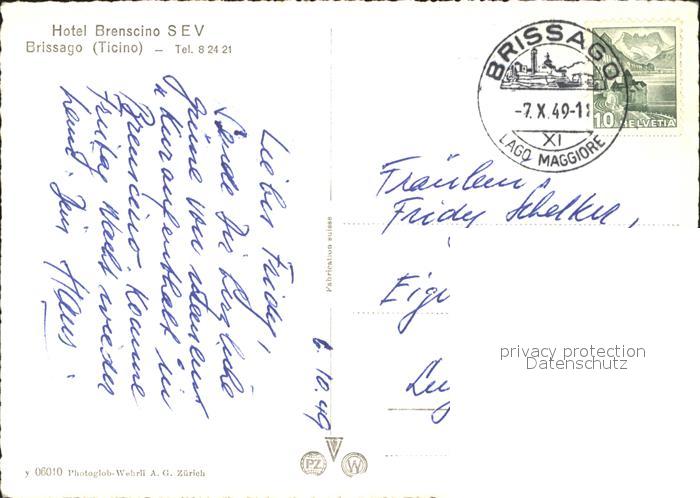 Hotel Brenscino SEV
Brissago (Ticino) — Tel. 8 24 21
BRISSAGO
-7.X.49-11
XI
LAGO MAGGIORE
10 HELVETIA
Fräulein
Fridy
Eig
Lu
privacy protection
Datenschutz
Liebes Fridy,
Sende Dir herzliche
Grüsse von meinem
Kuraufenthalt in
Brenscino. Komme
Freitag Nacht wieder
heim. Dein Hans.
6. 10. 49
Fabrication suisse
y 06010 Photoglob-Wehrli A. G. Zürich
PZ W